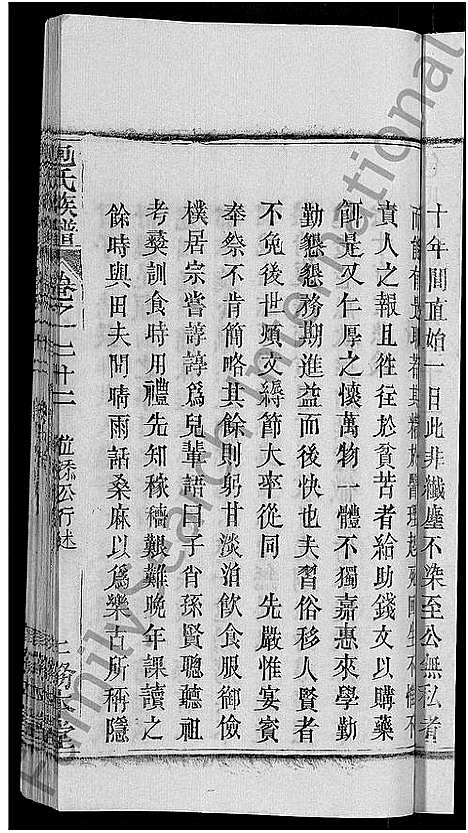 十年間直始一日此非纖塵不染至公無私者
而能有是耶若其精於醫理起死回生不憚不
責人之報且徃徃於貧苦者給助錢文以購藥
餌是又仁厚之懷萬物一體不獨嘉惠來學勤
勤懇懇務期進益而後快也夫習俗移人賢者
不免後世煩文縟節大率從同 先嚴惟宴賓
奉祭不肯簡略其餘則躬甘淡泊飲食服御儉
樸居宗嘗諄諄爲兒輩語曰子肖孫賢聰聽祖
考彝訓食時用禮先知稼穡艱難晚年課讀之
餘時與田夫閒晴雨話桑麻以爲樂古所稱隱
包氏族譜 卷之 公行述
FamilySearch International